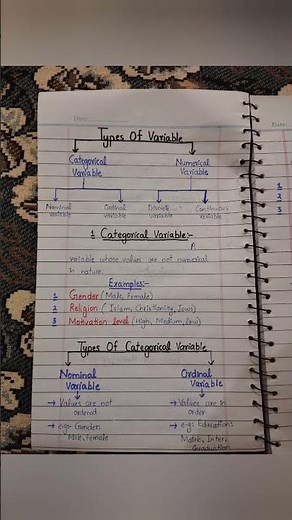 Types Of Variable
Categorical Variable
Numerical Variable
Nominal variable
Ordinal variable
Discrete variable
Continuous variable
1 Categorical Variable:-
A
variable whose values are not numerical
in nature.
Examples:-
1 Gender (Male, Female)
2 Religion (Islam, Christianity, Jews)
3 Motivation level (High, Medium, low)
Types Of Categorical Variable
Nominal Variable
→ Values are not ordered
→ e.g:- Gender
Male, Female
Ordinal Variable
→ Values are in order
→ e.g:- Educations
Matric, Inter,
Graduation
1
2
3